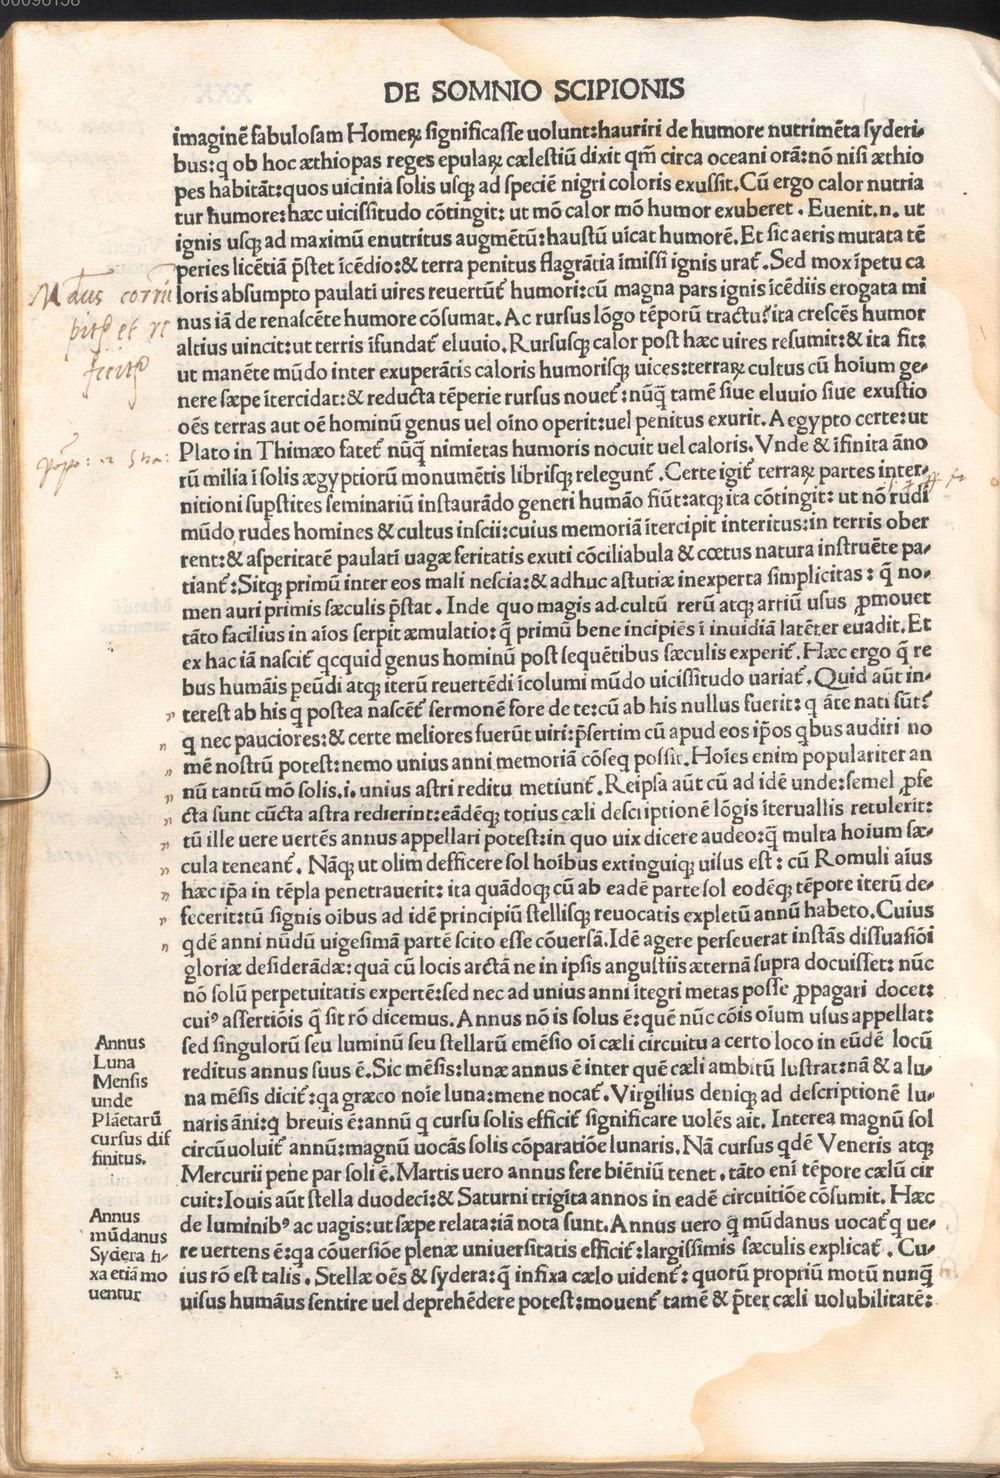 00096158
DE SOMNIO SCIPIONIS
imaginē fabulosam Homeꝝ significasse uolunt:hauriri de humore nutrimēta syderi⸗
bus:ꝗ ob hoc æthiopas reges epulaꝝ cælestiū dixit qm̄ circa oceani orā:nō nisi æthio
pes habitāt:quos uicinia solis usqꝫ ad speciē nigri coloris exussit.Cū ergo calor nutria
tur humore:hæc uicissitudo cōtingit: ut mō calor mō humor exuberet . Euenit.n. ut
ignis usqꝫ ad maximū enutritus augmētū:haustū uīcat humorē.Et sic aeris mutata tē
peries licētiā p̄stet īcēdio:& terra penitus flagrātia īmissi ignis urat̄.Sed mox īpetu ca
loris absumpto paulati uires reuertūt̄ humori:cū magna pars ignis īcēdiis erogata mi
nus iā de renascēte humore cōsumat. Ac rursus lōgo tēporū tractu:ita crescēs humor
altius uincit:ut terris īfundat̄ eluuio.Rursusqꝫ calor post hæc uires resumit:& ita fit:
ut manēte mūdo inter exuperātis caloris humorisqꝫ uices:terraꝝ cultus cū hoīum ge⸗
nere sæpe ītercidat:& reducta tēperie rursus nouet̄:nūꝗ̄ tamē siue eluuio siue exustio
oēs terras aut oē hominū genus uel oīno operit:uel penitus exurit.Aegypto certe:ut
Plato in Thimæo fatet̄ nūꝗ̄ nimietas humoris nocuit uel caloris. Vnde & īfinita āno
rū milia ī solis ægyptiorū monumētis librisqꝫ relegunt̄ .Certe igit̄ terraꝝ partes inter⸗
nitioni supstites seminariū instaurādo generi humāo fiūt:atqꝫ ita cōtingit: ut nō rudi
mūdo rudes homines & cultus inscii:cuius memoriā ītercipit interitus:in terris ober
rent:& asperitatē paulati uagæ feritatis exuti cōciliabula & cœtus natura instruēte pa⸗
tiant̄:Sitqꝫ primū inter eos mali nescia:& adhuc astutiæ inexperta simplicitas: ꝗ̄ no⸗
men auri primis sæculis p̄stat. Inde quo magis ad cultū rerū atqꝫ artiū usus ꝓmouet
tāto facilius in aīos serpit æmulatio:ꝗ̄ primū bene incipiēs ī inuidiā latēter euadit.Et
ex hac iā nascit̄ qcquid genus hominū post sequētibus sæculis experit̄.Hæc ergo ꝗ̄ re
bus humāis peūdi atqꝫ iterū reuertēdi īcolumi mūdo uicissitudo uariat̄.Quid aūt in⸗
terest ab his ꝗ postea nascēt̄ sermonē fore de te:cū ab his nullus fuerit: ꝗ āte nati sūt:
ꝗ nec pauciores:& certe meliores fuerūt uiri:p̄sertim cū apud eos ip̄os qbus audiri no
mē nostrū potest:nemo unius anni memoriā cōseq possit.Hoīes enim populariter an
nū tantū mō solis.i.unius astri reditu metiunt̄.Reipsa aūt cū ad idē unde:semel ꝓfe
cta sunt cūcta astra redierint:eādēqꝫ totius cæli descriptionē lōgis īteruallis retulerit:
tū ille uere uertēs annus appellari potest:in quo uix dicere audeo:ꝗ̄ multa hoīum sæ⸗
cula teneant̄. Nāqꝫ ut olim defficere sol hoībus extinguiqꝫ uisus est: cū Romuli aīus
hæc ip̄a in tēpla penetrauerit: ita quādoqꝫ cū ab eadē parte sol eodēqꝫ tēpore iterū de⸗
fecerit:tū signis oībus ad idē principiū stellisqꝫ reuocatis expletū annū habeto.Cuius
qdē anni nūdū uigesimā partē scito esse cōuersā.Idē agere perseuerat instās dissuasiōi
gloriæ desiderādæ:quā cū locis arctā ne in ipsis angustiis æternā supra docuisset: nūc
nō solū perpetuitatis expertē:sed nec ad unius anni ītegri metas posse ꝓpagari docet:
cuiꝰ assertiōis ꝗ̄ sit rō dicemus.Annus nō is solus ē:quē nūc cōis oīum usus appellat:
sed singulorū seu luminū seu stellarū emēsio oī cæli circuitu a certo loco in eūdē locū
reditus annus suus ē.Sic mēsis:lunæ annus ē inter quē cæli ambitū lustrat:nā & a lu⸗
na mēsis dicit̄:qa græco noīe luna:mene nocat̄.Virgilius deniqꝫ ad descriptionē lu⸗
naris āni:ꝗ breuis ē:annū ꝗ cursu solis efficit̄ significare uolēs ait. Interea magnū sol
circūuoluit̄ annū:magnū uocās solis cōparatiōe lunaris.Nā cursus qdē Veneris atqꝫ
Mercurii pene par soli ē.Martis uero annus fere biēniū tenet.tāto enī tēpore cælū cir
cuit:Iouis aūt stella duodecī:& Saturni trigīta annos in eadē circuitiōe cōsumit. Hæc
de luminibꝰ ac uagis:ut sæpe relata:iā nota sunt.Annus uero ꝗ̄ mūdanus uocat̄ ꝗ ue⸗
re uertens ē:qa cōuersiōe plenæ uniuersitatis efficit̄:largissimis sæculis explicat̄ . Cu⸗
ius rō est talis. Stellæ oēs & sydera:ꝗ̄ infixa cælo uident̄: quorū propriū motū nunꝗ̄
uisus humāus sentire uel deprehēdere potest:mouent̄ tamē & p̄ter cæli uolubilitatē:
Annus
Luna
Mensis
unde
Plāetarū
cursus dif
finitus.
Annus
mūdanus
Sydera fi⸗
xa etiā mo
uentur